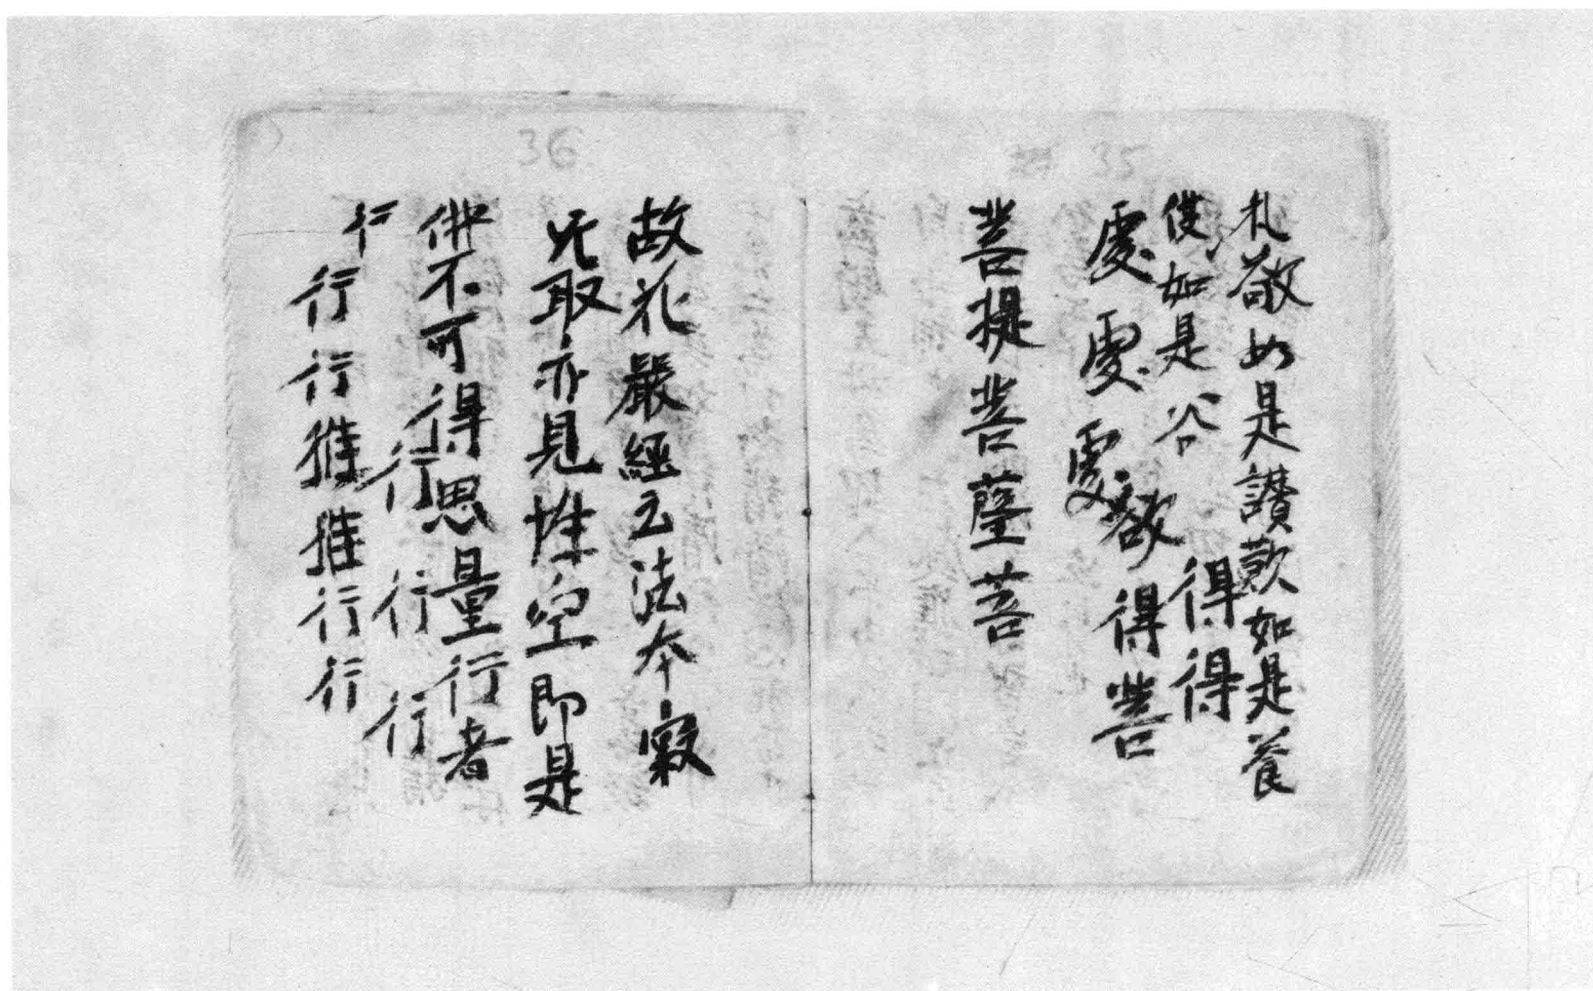 35
礼敬如是讃歎如是養
使如是谷得得
處處處欲得菩
菩提菩薩菩
36
故花嚴經云法本寂
无取亦見性空即是
佛不可得思量行者
行行行行
行行行推推行行